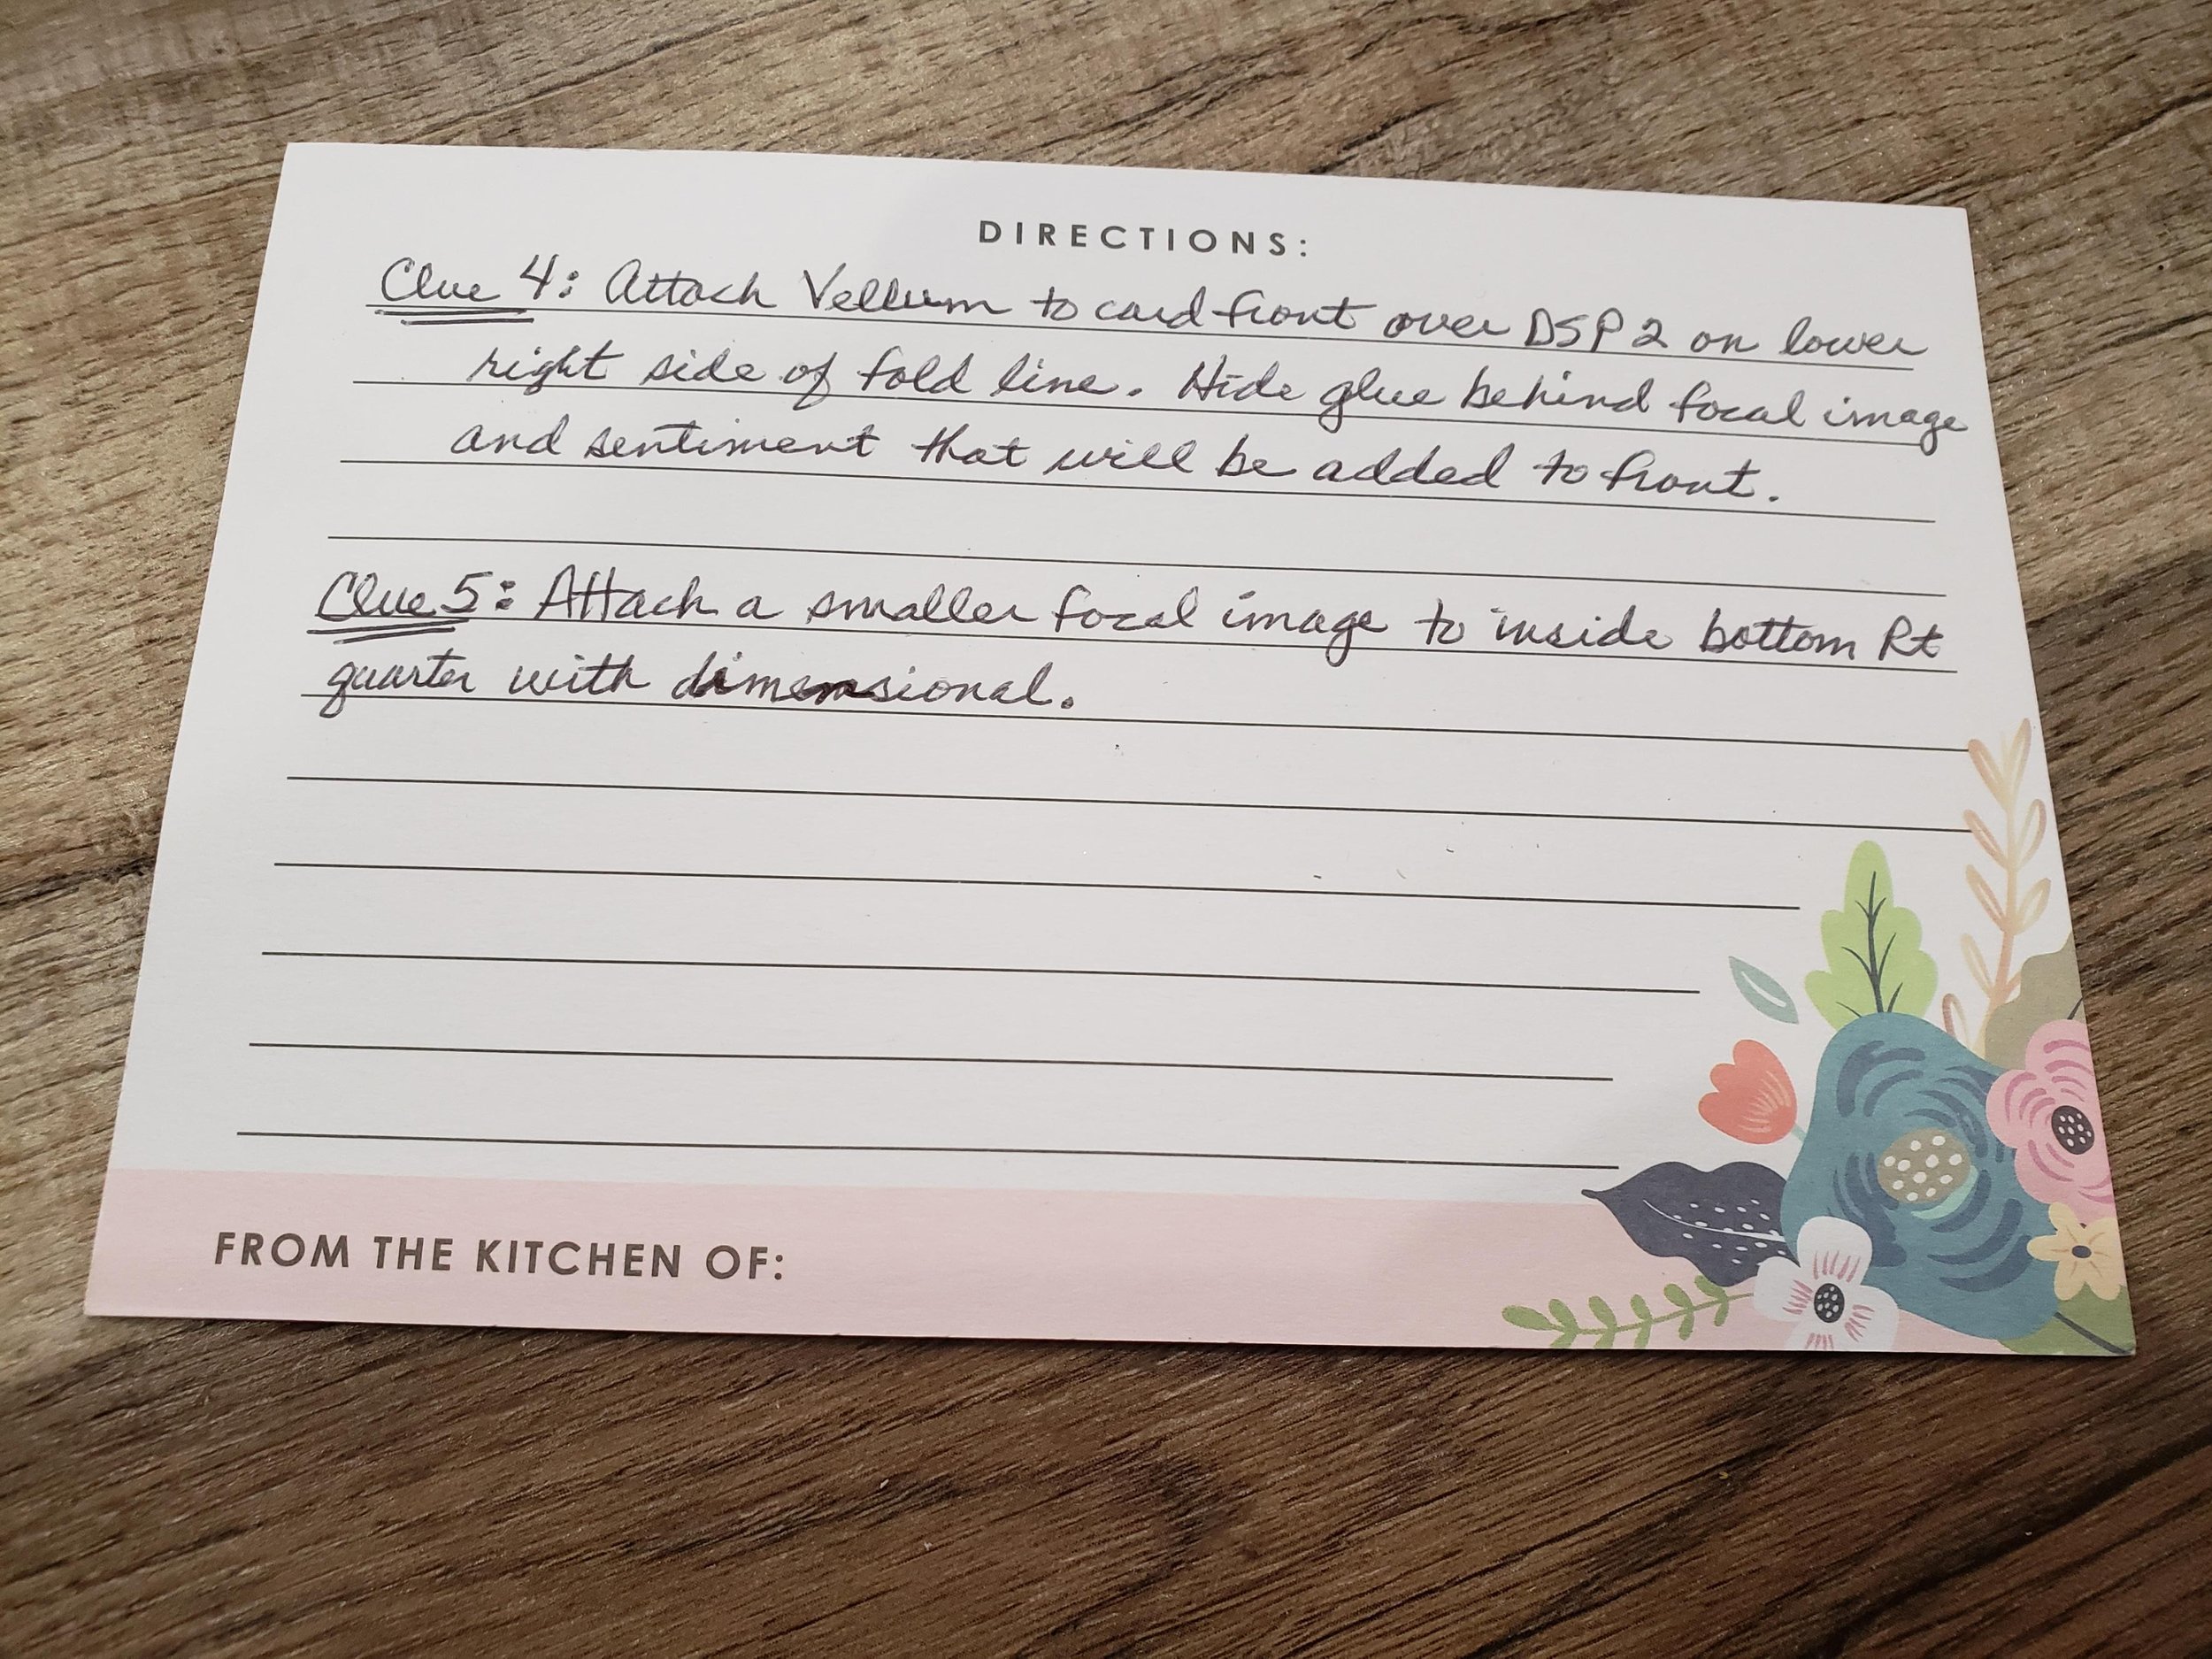 DIRECTIONS:
Clue 4: Attach Vellum to card front over DSP 2 on lower
right side of fold line. Hide glue behind focal image
and sentiment that will be added to front.
Clue 5: Attach a smaller focal image to inside bottom Rt
quarter with dimensional.
FROM THE KITCHEN OF: